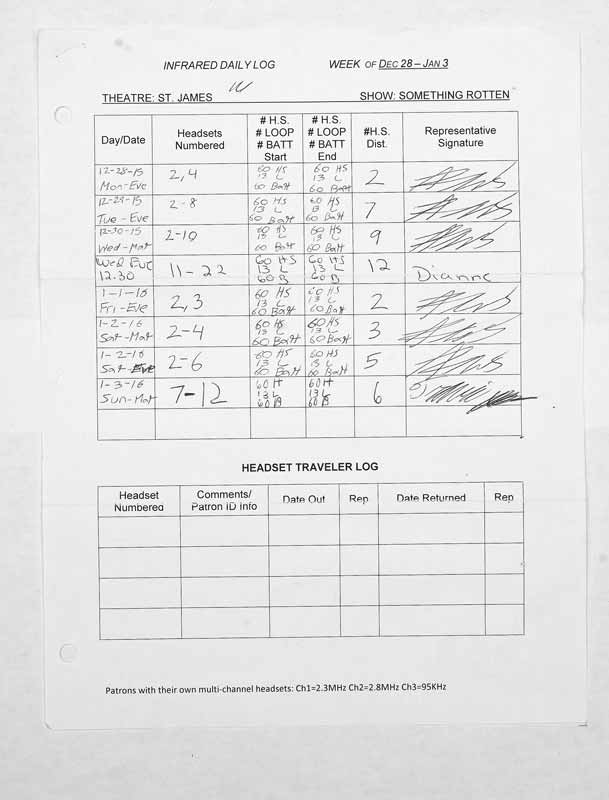 INFRARED DAILY LOG WEEK OF DEC 28 – JAN 3
THEATRE: ST. JAMES SHOW: SOMETHING ROTTEN
Day/Date Headsets Numbered # H.S. # LOOP # BATT Start # H.S. # LOOP # BATT End #H.S. Dist. Representative Signature
12-28-15 Mon-Eve 2,4 60 HS 13 L 60 Batt 60 HS 13 L 60 Batt 2
12-29-15 Tue-Eve 2-8 60 HS 13 L 60 Batt 60 HS 13 L 60 Batt 7
12-30-15 Wed-Mat 2-10 60 HS 13 L 60 Batt 60 HS 13 L 60 Batt 9
Wed Eve 12.30 11-22 60 HS 13 L 60 B 60 HS 13 L 60 B 12 Dianne
1-1-16 Fri-Eve 2,3 60 HS 13 L 60 Batt 60 HS 13 L 60 Batt 2
1-2-16 Sat-Mat 2-4 60 HS 13 L 60 Batt 60 HS 13 L 60 Batt 3
1-2-16 Sat-Eve 2-6 60 HS 13 L 60 Batt 60 HS 13 L 60 Batt 5
1-3-16 Sun-Mat 7-12 60 H 13 L 60 B 60 H 13 L 60 B 6
HEADSET TRAVELER LOG
Headset Numbered Comments/ Patron ID Info Date Out Rep Date Returned Rep
Patrons with their own multi-channel headsets: Ch1=2.3MHz Ch2=2.8MHz Ch3=95KHz